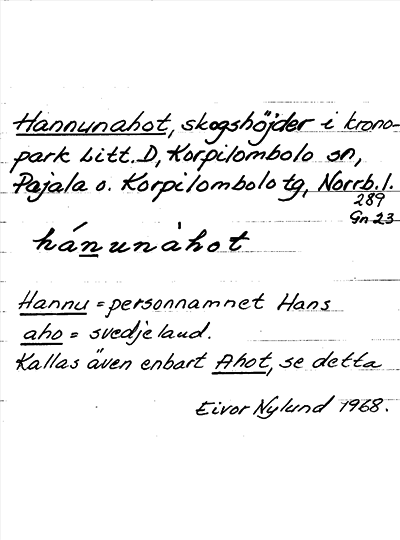 Hannunahot, skogshöjder i krono-
park Litt. D, Korpilombolo sn,
Pajala o. Korpilombolo tg, Norrb. l.
289
Gn 23
hánunàhot
Hannu = personnamnet Hans
aho = svedjeland.
Kallas även enbart Ahot, se detta
Eivor Nylund 1968.